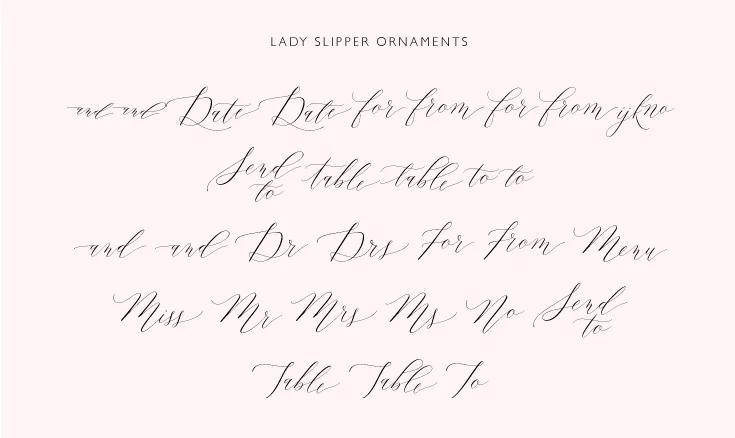 LADY SLIPPER ORNAMENTS
and and Date Date for from for from ijkno
Send to table table to to
and and Dr Drs For From Menu
Miss Mr Mrs Ms No Send to
Table Table To